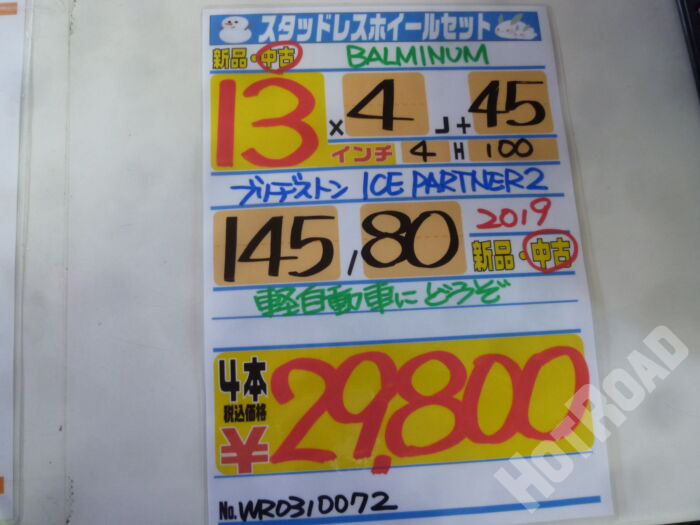 スタッドレスホイールセット
新品・中古 BALMINUM
13 × 4 J + 45
インチ 4 H 100
ブリヂストン ICE PARTNER2
145 / 80 2019
新品・中古
軽自動車に どうぞ
4本
税込価格
¥29,800
No. WR0310072
HOTROAD